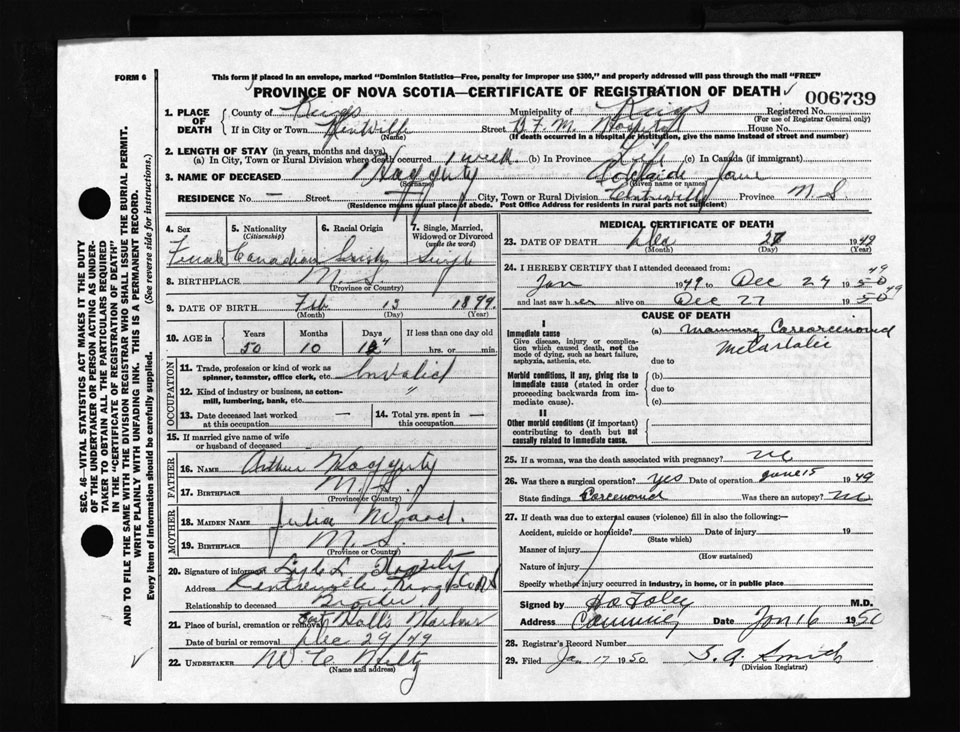 FORM 6
This form if placed in an envelope, marked "Dominion Statistics—Free, penalty for improper use $300," and properly addressed will pass through the mail "FREE"
PROVINCE OF NOVA SCOTIA—CERTIFICATE OF REGISTRATION OF DEATH
006739
1. PLACE OF DEATH
County of Kings Municipality of Kings Registered No.
(For use of Registrar General only)
If in City or Town Kentville Street B. F. M. Hospital House No.
(Name) (If death occurred in a Hospital or Institution, give the name instead of street and number)
2. LENGTH OF STAY (in years, months and days)
(a) In City, Town or Rural Division where death occurred 1 week (b) In Province Life (c) In Canada (if immigrant)
3. NAME OF DECEASED Haggerty Adelaide Jane
(Surname) (Given name or names)
RESIDENCE No. — Street City, Town or Rural Division Centreville Province N. S.
(Residence means usual place of abode. Post Office Address for residents in rural parts not sufficient)
4. Sex 5. Nationality (Citizenship) 6. Racial Origin 7. Single, Married, Widowed or Divorced (write the word)
Female Canadian Irish Single
8. BIRTHPLACE N. S.
(Province or Country)
9. DATE OF BIRTH Feb 13 1899
(Month) (Day) (Year)
10. AGE in Years Months Days If less than one day old
50 10 14 hrs. or min.
OCCUPATION
11. Trade, profession or kind of work as spinner, teamster, office clerk, etc. Invalid
12. Kind of industry or business, as cotton-mill, lumbering, bank, etc. "
13. Date deceased last worked at this occupation —
14. Total yrs. spent in this occupation —
15. If married give name of wife or husband of deceased
FATHER
16. NAME Arthur Haggerty
17. BIRTHPLACE N. S.
(Province or Country)
MOTHER
18. MAIDEN NAME Julia Ward.
19. BIRTHPLACE N. S.
(Province or Country)
20. Signature of informant Haggerty
Address Centreville Kings Co N S
Relationship to deceased Brother
21. Place of burial, cremation or removal Halls Harbour
Date of burial or removal Dec 29/49
22. UNDERTAKER W. C.
(Name and address)
MEDICAL CERTIFICATE OF DEATH
23. DATE OF DEATH Dec 27 1949
(Month) (Day) (Year)
24. I HEREBY CERTIFY that I attended deceased from:
Jan 1949 to Dec 27 1950 49
and last saw her alive on Dec 27 1950 49
CAUSE OF DEATH
I
Immediate cause
Give disease, injury or complication which caused death, not the mode of dying, such as heart failure, asphyxia, asthenia, etc.
(a) Mammary
due to
Morbid conditions, if any, giving rise to immediate cause (stated in order proceeding backwards from immediate cause).
(b)
due to
(c)
II
Other morbid conditions (if important) contributing to death but not causally related to immediate cause.
25. If a woman, was the death associated with pregnancy? no
26. Was there a surgical operation? yes Date of operation June 15 1949
State findings Was there an autopsy? no
27. If death was due to external causes (violence) fill in also the following:—
Accident, suicide or homicide? Date of injury 19
(State which)
Manner of injury
(How sustained)
Nature of injury
Specify whether injury occurred in industry, in home, or in public place
Signed by Foley M.D.
Address Canning Date Jan 16 1950
28. Registrar's Record Number
29. Filed Jan 17 1950 Smith
(Division Registrar)
SEC. 46—VITAL STATISTICS ACT MAKES IT THE DUTY
OF THE UNDERTAKER OR PERSON ACTING AS UNDER-
TAKER TO OBTAIN ALL THE PARTICULARS REQUIRED
IN THE "CERTIFICATE OF REGISTRATION OF DEATH"
AND TO FILE THE SAME WITH THE DIVISION REGISTRAR WHO SHALL ISSUE THE BURIAL PERMIT.
WRITE PLAINLY WITH UNFADING INK. THIS IS A PERMANENT RECORD.
Every item of information should be carefully supplied. (See reverse side for instructions.)